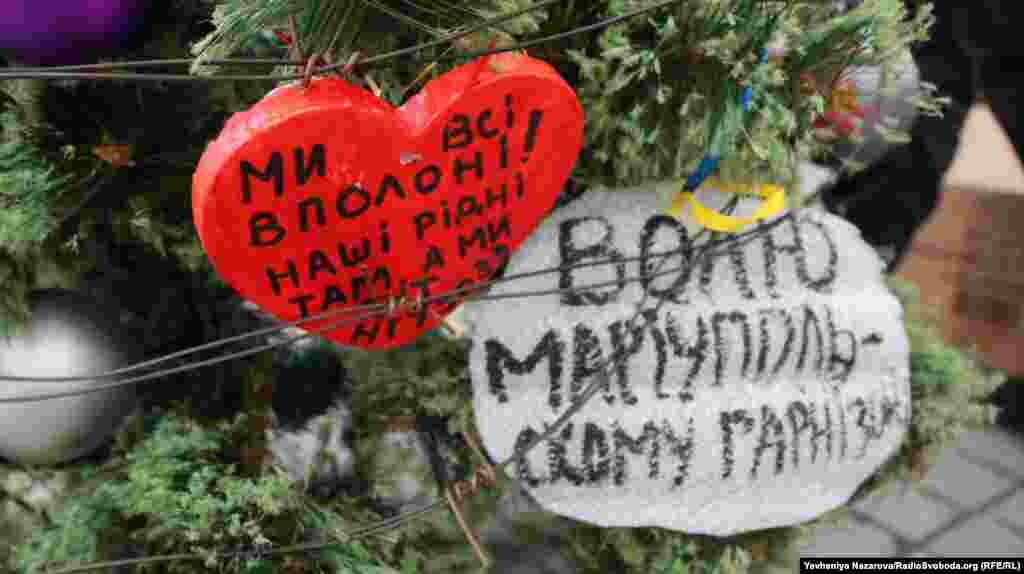 МИ ВСІ
В ПОЛОНІ!
НАШІ РІДНІ
ТАМ, А МИ
ТУТ
ВОЛЮ
МАРІУПОЛЬ-
СЬКОМУ ГАРНІЗОНУ
Yevheniya Nazarova/RadioSvoboda.org (RFE/RL)